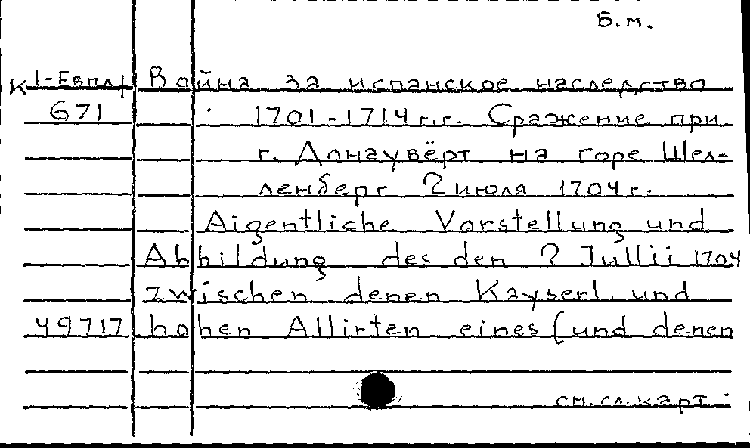 Б.м.
К 1-Европ Война за испанское наследство
671 1701-1714 г.г. Сражение при
г. Донаувёрт на горе Шел-
ленберг 2 июля 1704 г.
Aigentliche Vorstellung und
Abbildung des den 2 Jullii 1704
zwischen denen Kayserl. und
49717 hohen Allirten eines (und denen
см. сл. карт.